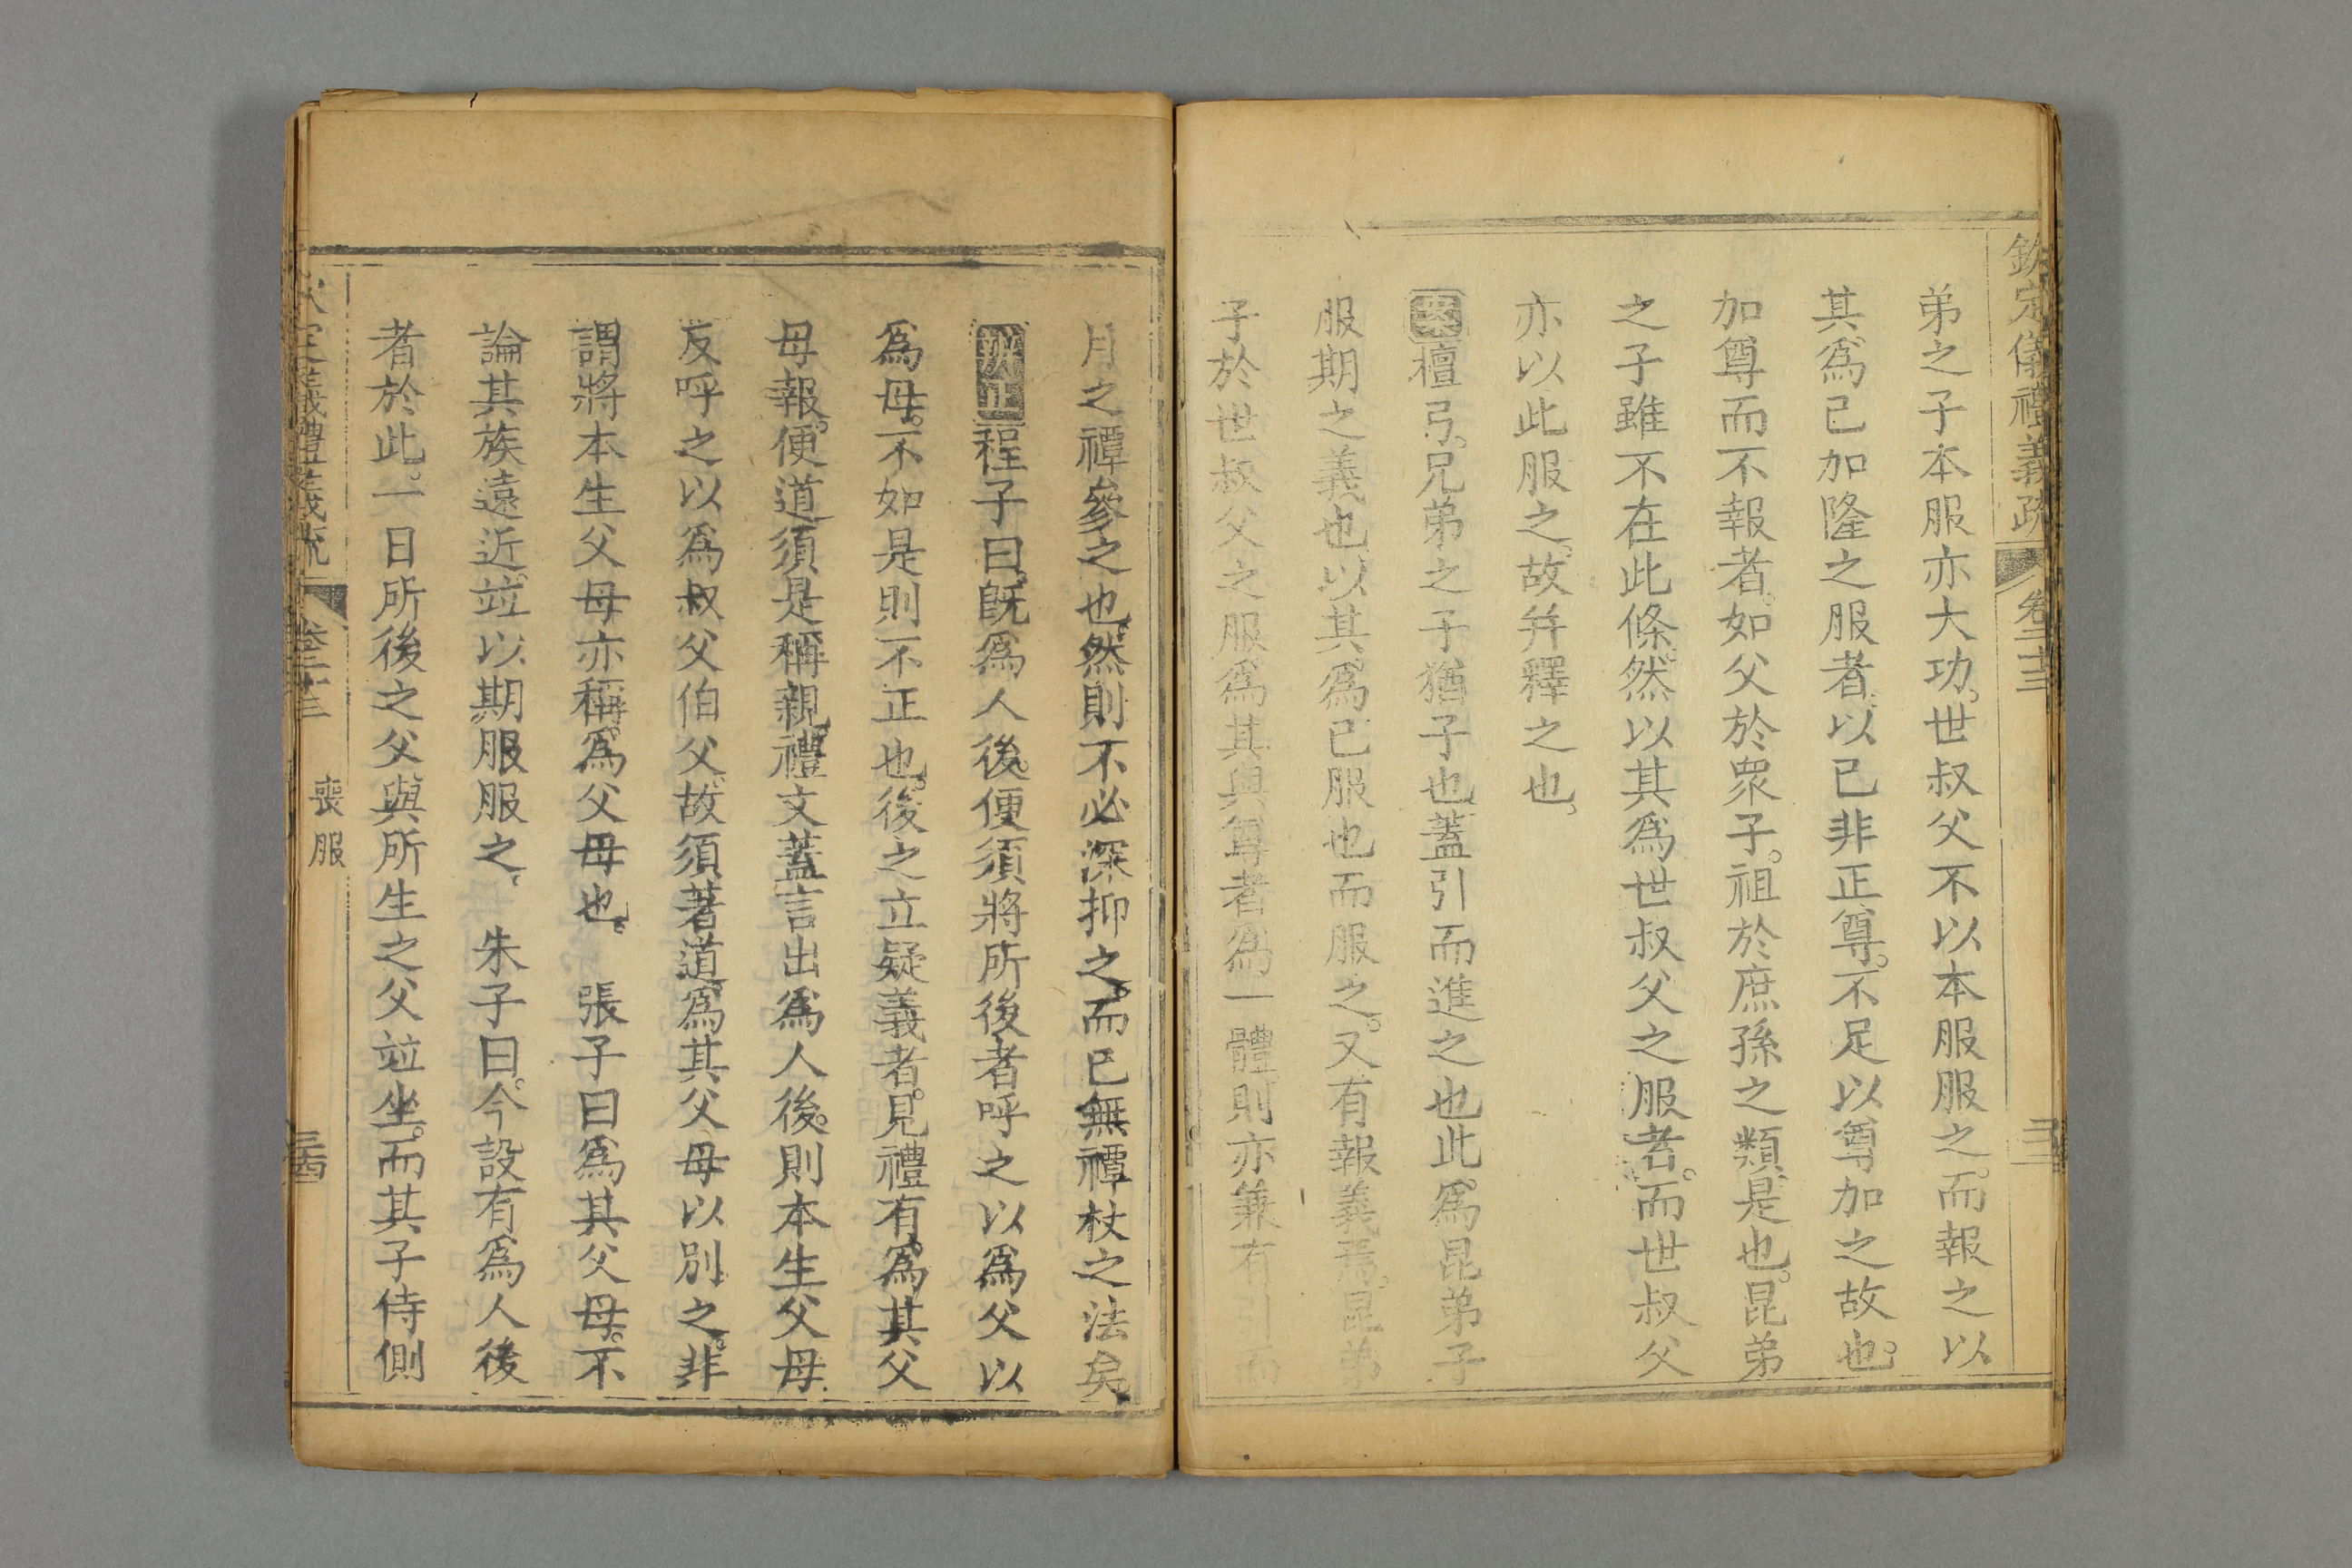 欽定儀禮義疏 卷二十三
弟之子本服亦大功。世叔父不以本服服之。而報之以
其爲己加隆之服者。以己非正尊。不足以尊加之故也。
加尊而不報者。如父於衆子。祖於庶孫之類是也。昆弟
之子雖不在此條。然以其爲世叔父之服者。而世叔父
亦以此服之。故幷釋之也。
案檀弓。兄弟之子猶子也。蓋引而進之也。此爲昆弟子
服期之義也。以其爲己服也而服之。又有報義焉。昆弟
子於世叔父之服。爲其與尊者爲一體。則亦兼有引而
月之禫參之也。然則不必深抑之。而已無禫杖之法矣。
欽正程子曰。旣爲人後。便須將所後者呼之以爲父以
爲母。不如是則不正也。後之立疑義者。見禮有爲其父
母報。便道須是稱親。禮文蓋言出爲人後。則本生父母
反呼之以爲叔父伯父。故須著道爲其父母以別之。非
謂將本生父母亦稱爲父母也。 張子曰爲其父母。不
論其族遠近。竝以期服服之。 朱子曰。今設有爲人後
者於此。一日所後之父與所生之父竝坐。而其子侍側
欽定義禮義疏 卷二十三 喪服 三十四